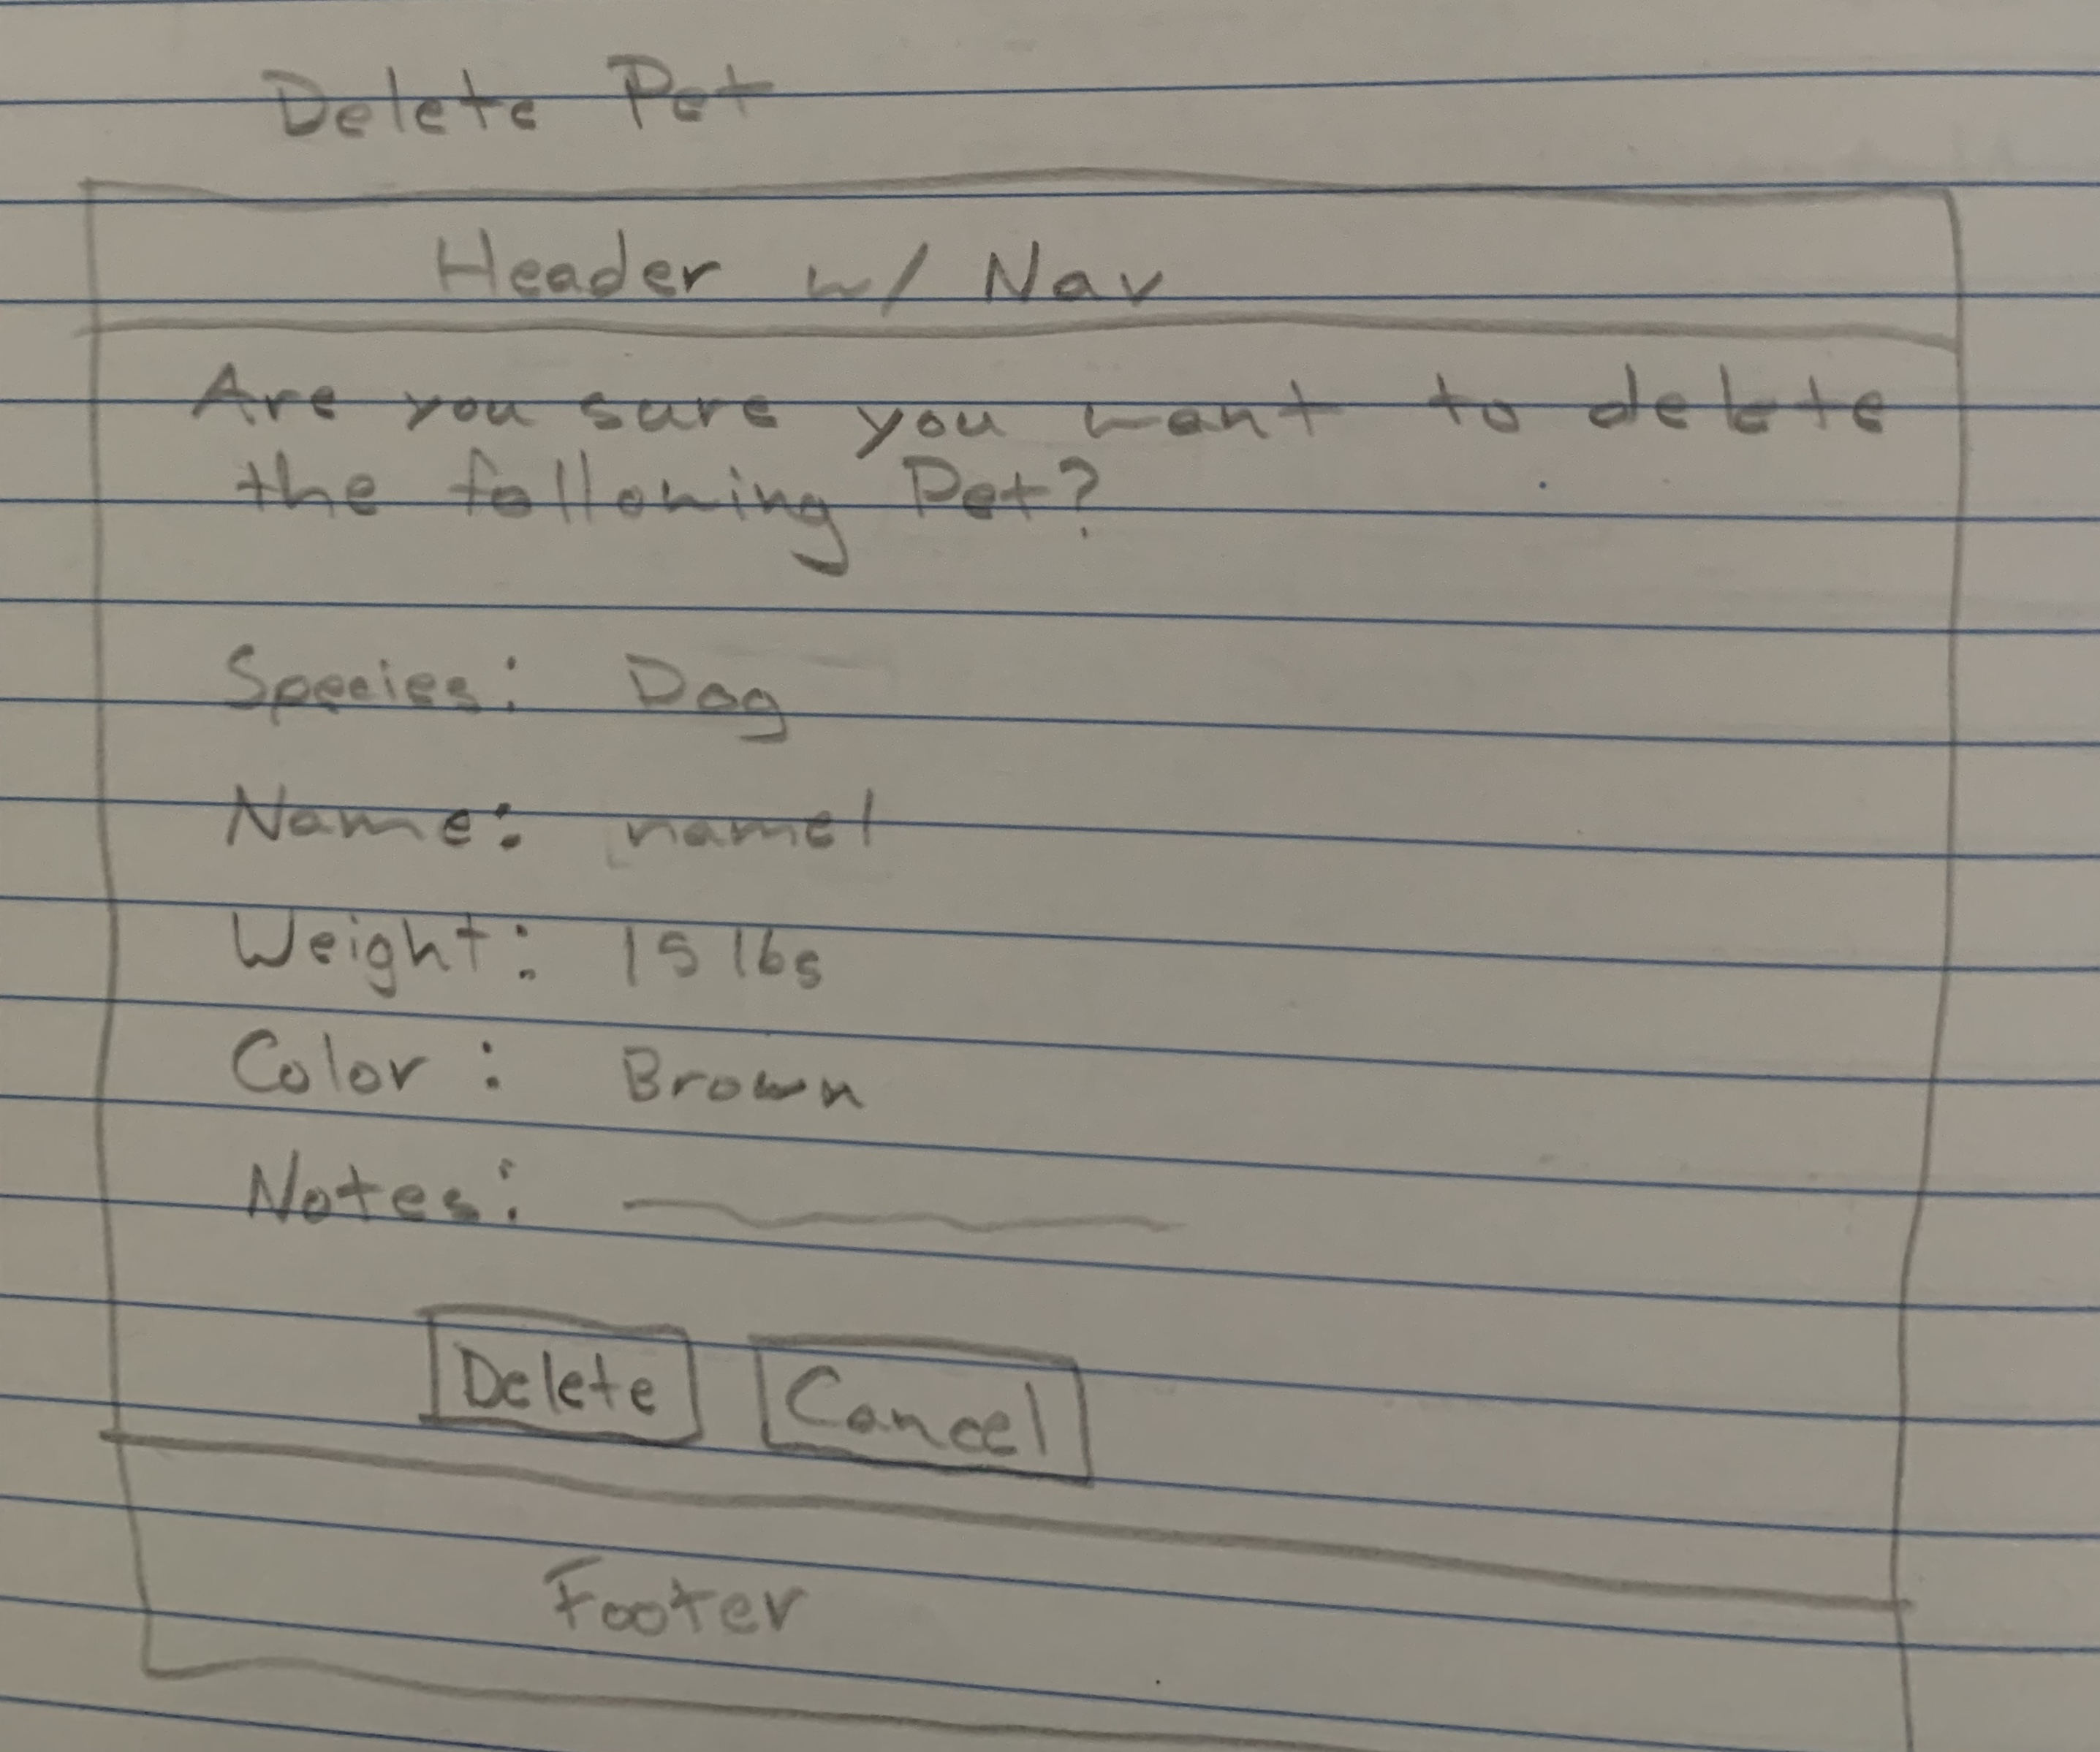 Delete Pet
Header w/ Nav
Are you sure you want to delete
the following Pet?
Species: Dog
Name: name1
Weight: 15 lbs
Color: Brown
Notes:
Delete Cancel
Footer